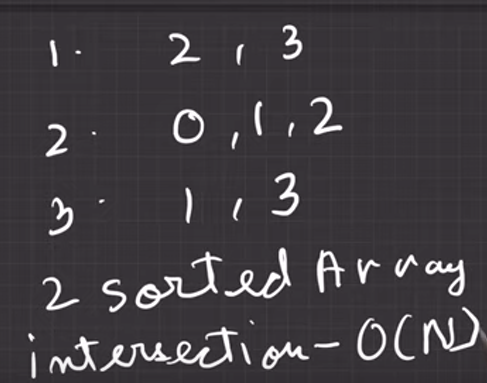 1. 2, 3
2. 0, 1, 2
3. 1, 3
2 sorted Array
intersection - O(N)